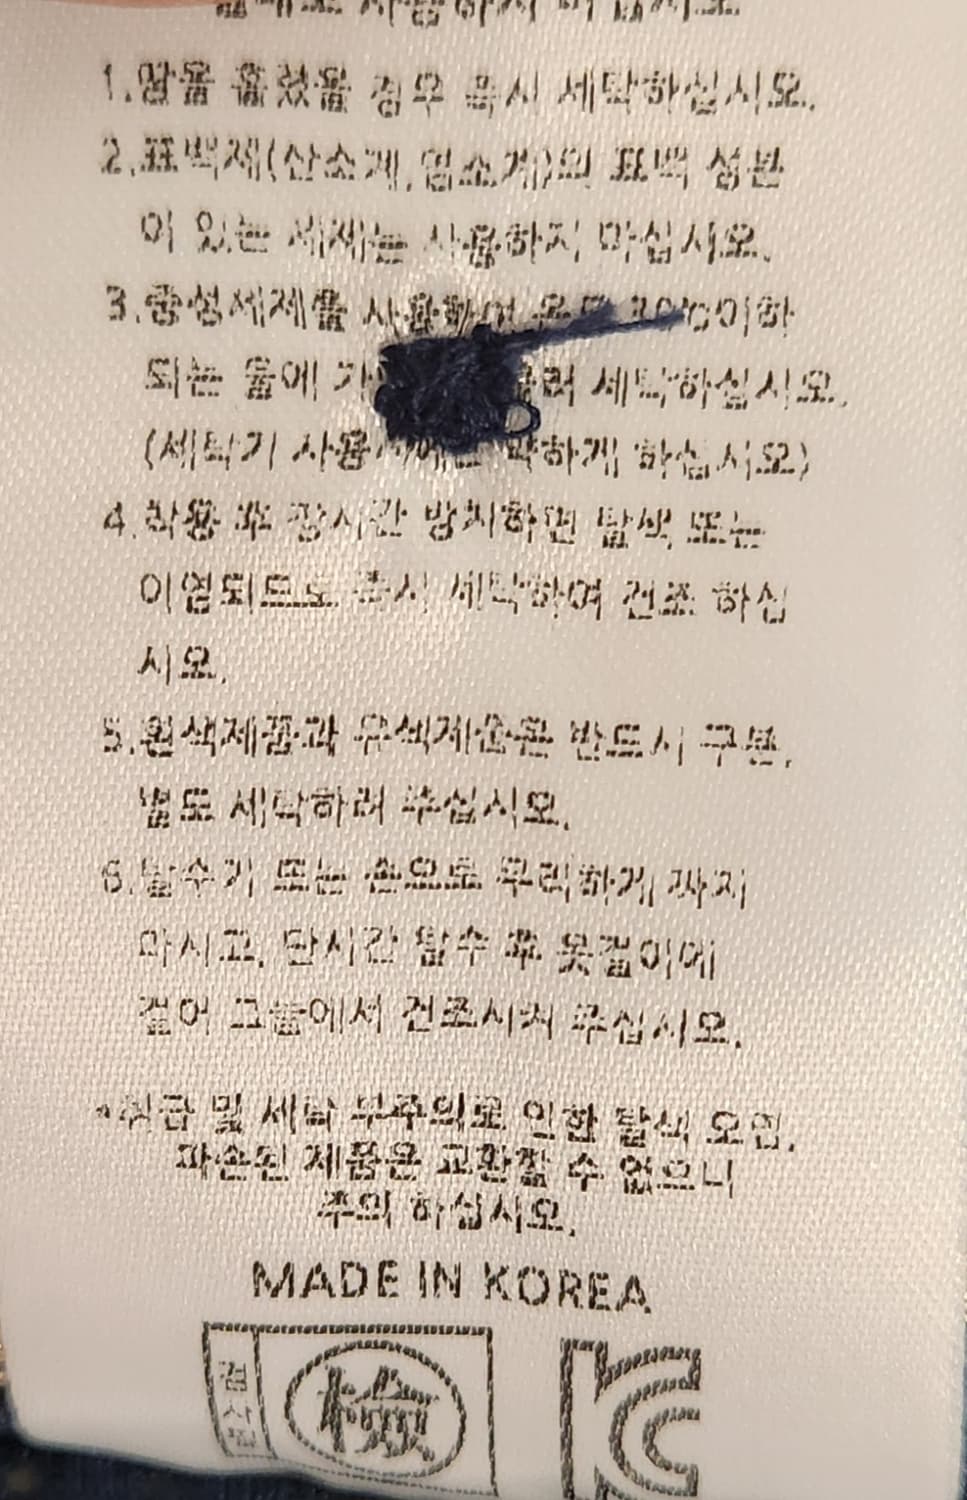 사용하지 마십시오
1.땀을 흘렸을 경우 즉시 세탁하십시오.
2.표백제(산소계,염소계)의 표백 성분
이 있는 세제는 사용하지 마십시오.
3.중성세제를 사용하여 온도 30℃이하
되는 물에 세탁하십시오.
(세탁기 사용 약하게 하십시오)
4.착용 후 장시간 방치하면 탈색 또는
이염되므로 즉시 세탁하여 건조 하십
시오.
5.흰색제품과 유색제품은 반드시 구분,
별도 세탁하여 주십시오.
6.탈수기 또는 손으로 무리하게 짜지
마시고, 단시간 탈수 후 옷걸이에
걸어 그늘에서 건조시켜 주십시오.
*취급 및 세탁 부주의로 인한 탈색 오염,
파손된 제품은 교환할 수 없으니
주의 하십시오.
MADE IN KOREA
검사필 檢 KC